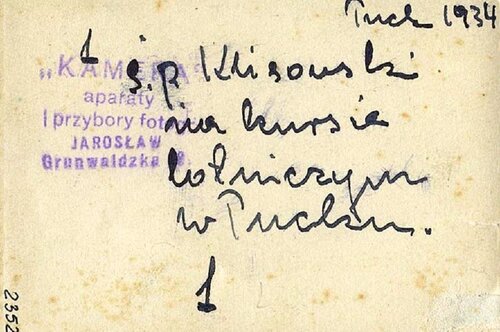 Puck 1934
1 ś.p. Klisowski
na kursie
lotniczym
w Pucku.
1
"KAMERA"
aparaty
i przybory foto
JAROSŁAW
Grunwaldzka
2352